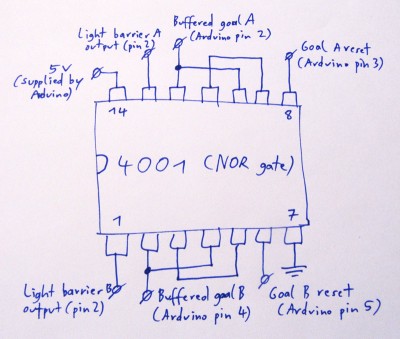 Buffered goal A
(Arduino pin 2)
Light barrier A
output (pin 2)
Goal A reset
(Arduino pin 3)
5V
(supplied by
Arduino)
14
8
4001 (NOR gate)
1
7
Light barrier B
output (pin 2)
Buffered goal B
(Arduino pin 4)
Goal B reset
(Arduino pin 5)